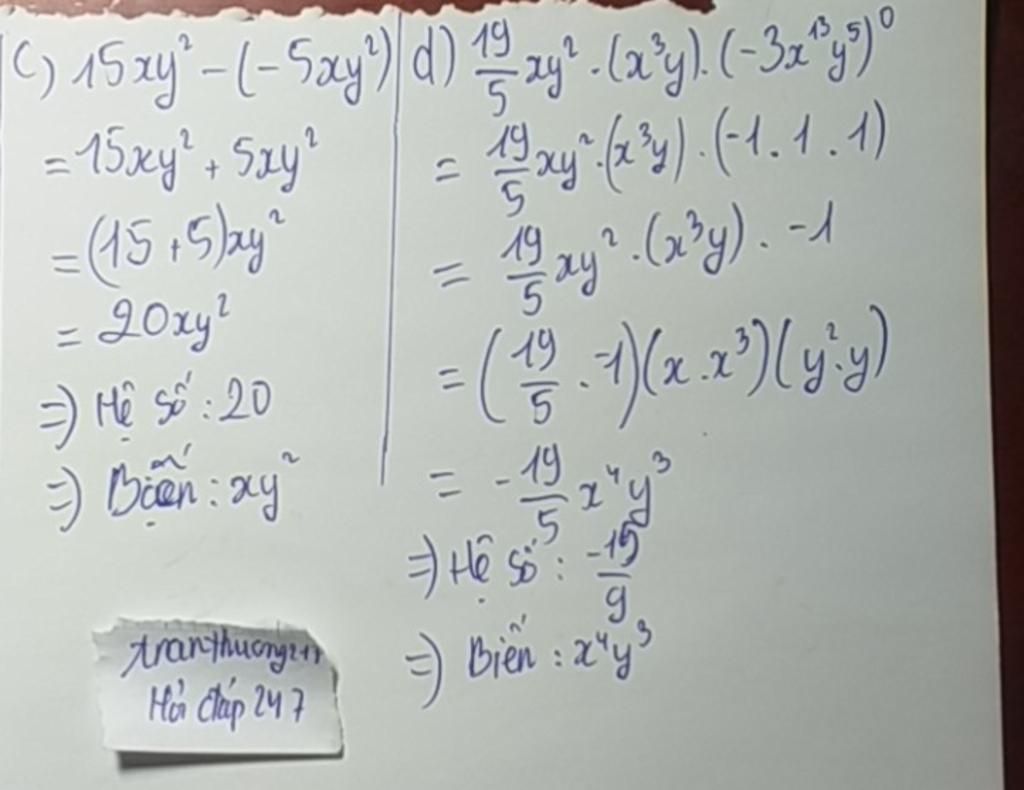 c) 15xy² - (-5xy²)
= 15xy² + 5xy²
= (15 + 5)xy²
= 20xy²
=> Hệ số : 20
=> Biến : xy²
d) 19/5 xy² . (x³y) . (-3x¹³y⁵)⁰
= 19/5 xy² . (x³y) . (-1 . 1 . 1)
= 19/5 xy² . (x³y) . -1
= (19/5 . -1)(x . x³)(y² . y)
= -19/5 x⁴y³
=> Hệ số : -15/9
=> Biến : x⁴y³
tranthuong211
Hỏi đáp 247